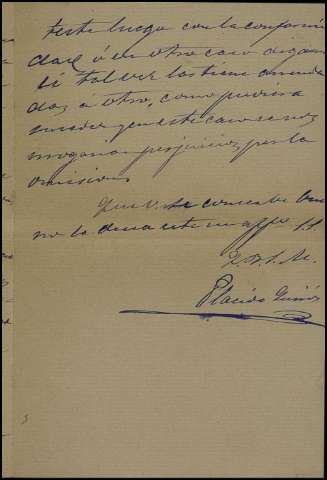 teste luego con la conformi
dad ó en otro caso digan
si tal vez los tiene comenda
dos a otro, como pudiera
suceder y en este caso se nos
irrogarian perjuicios por la
omision.
Que V. se conserve bue
no le desea este su affmo. S.S.
Q.B.S.M.
Placido